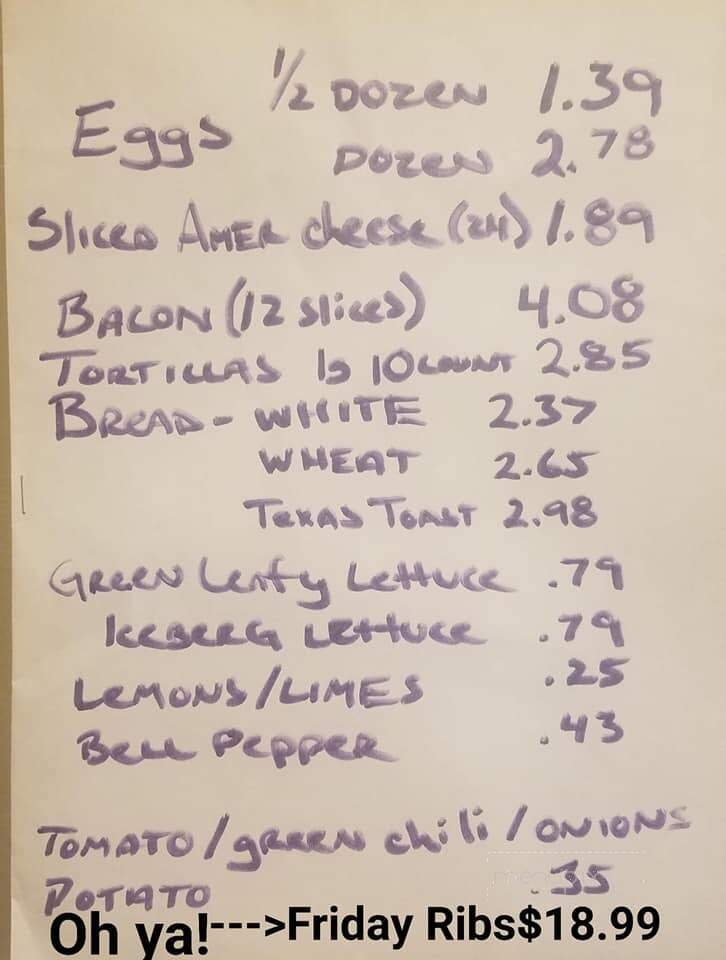 1/2 DOZEN 1.39
Eggs
DOZEN 2.78
SLICED AMER cheese (24) 1.89
BACON (12 slices) 4.08
TORTILLAS 10 COUNT 2.85
BREAD - WHITE 2.37
WHEAT 2.65
TEXAS TOAST 2.98
GREEN Leafy Lettuce .79
ICEBERG LETTUCE .79
LEMONS/LIMES .25
BELL PEPPER .43
TOMATO/green chili/ONIONS
POTATO .35
Oh ya!--->Friday Ribs$18.99